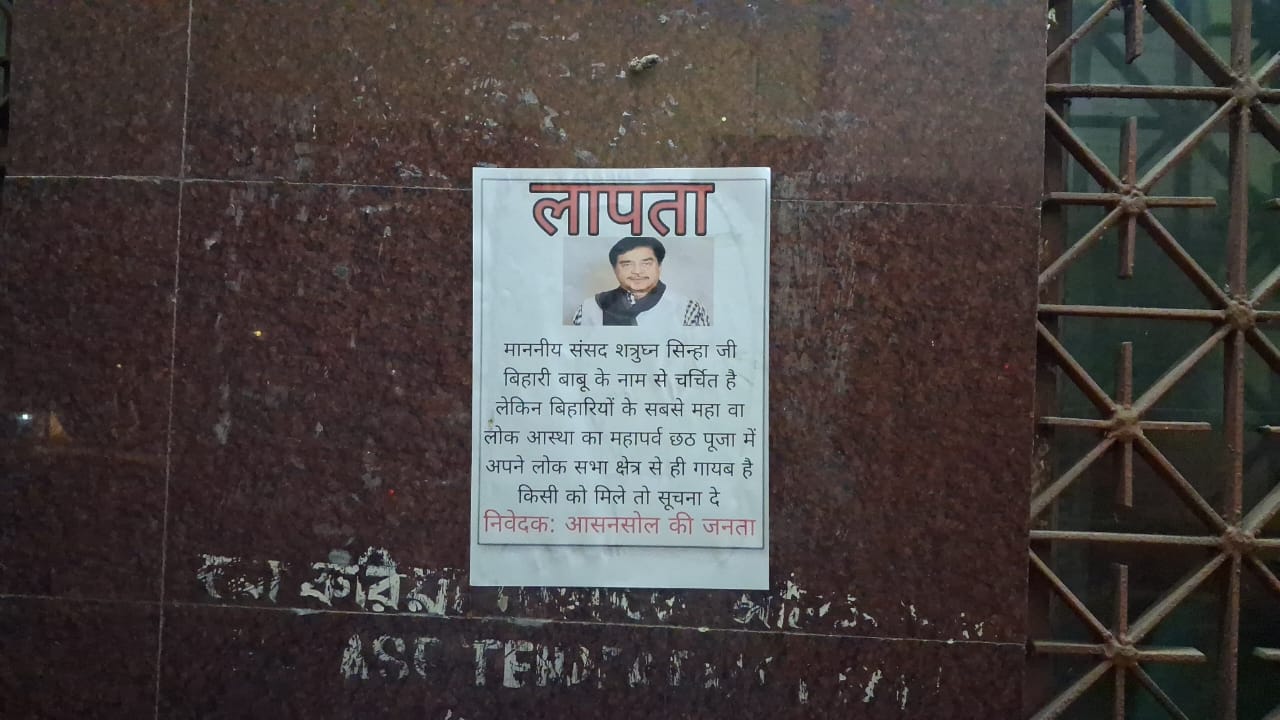 लापता
माननीय संसद शत्रुघ्न सिन्हा जी
बिहारी बाबू के नाम से चर्चित है
लेकिन बिहारियों के सबसे महा वा
लोक आस्था का महापर्व छठ पूजा में
अपने लोक सभा क्षेत्र से ही गायब है
किसी को मिले तो सूचना दे
निवेदक: आसनसोल की जनता